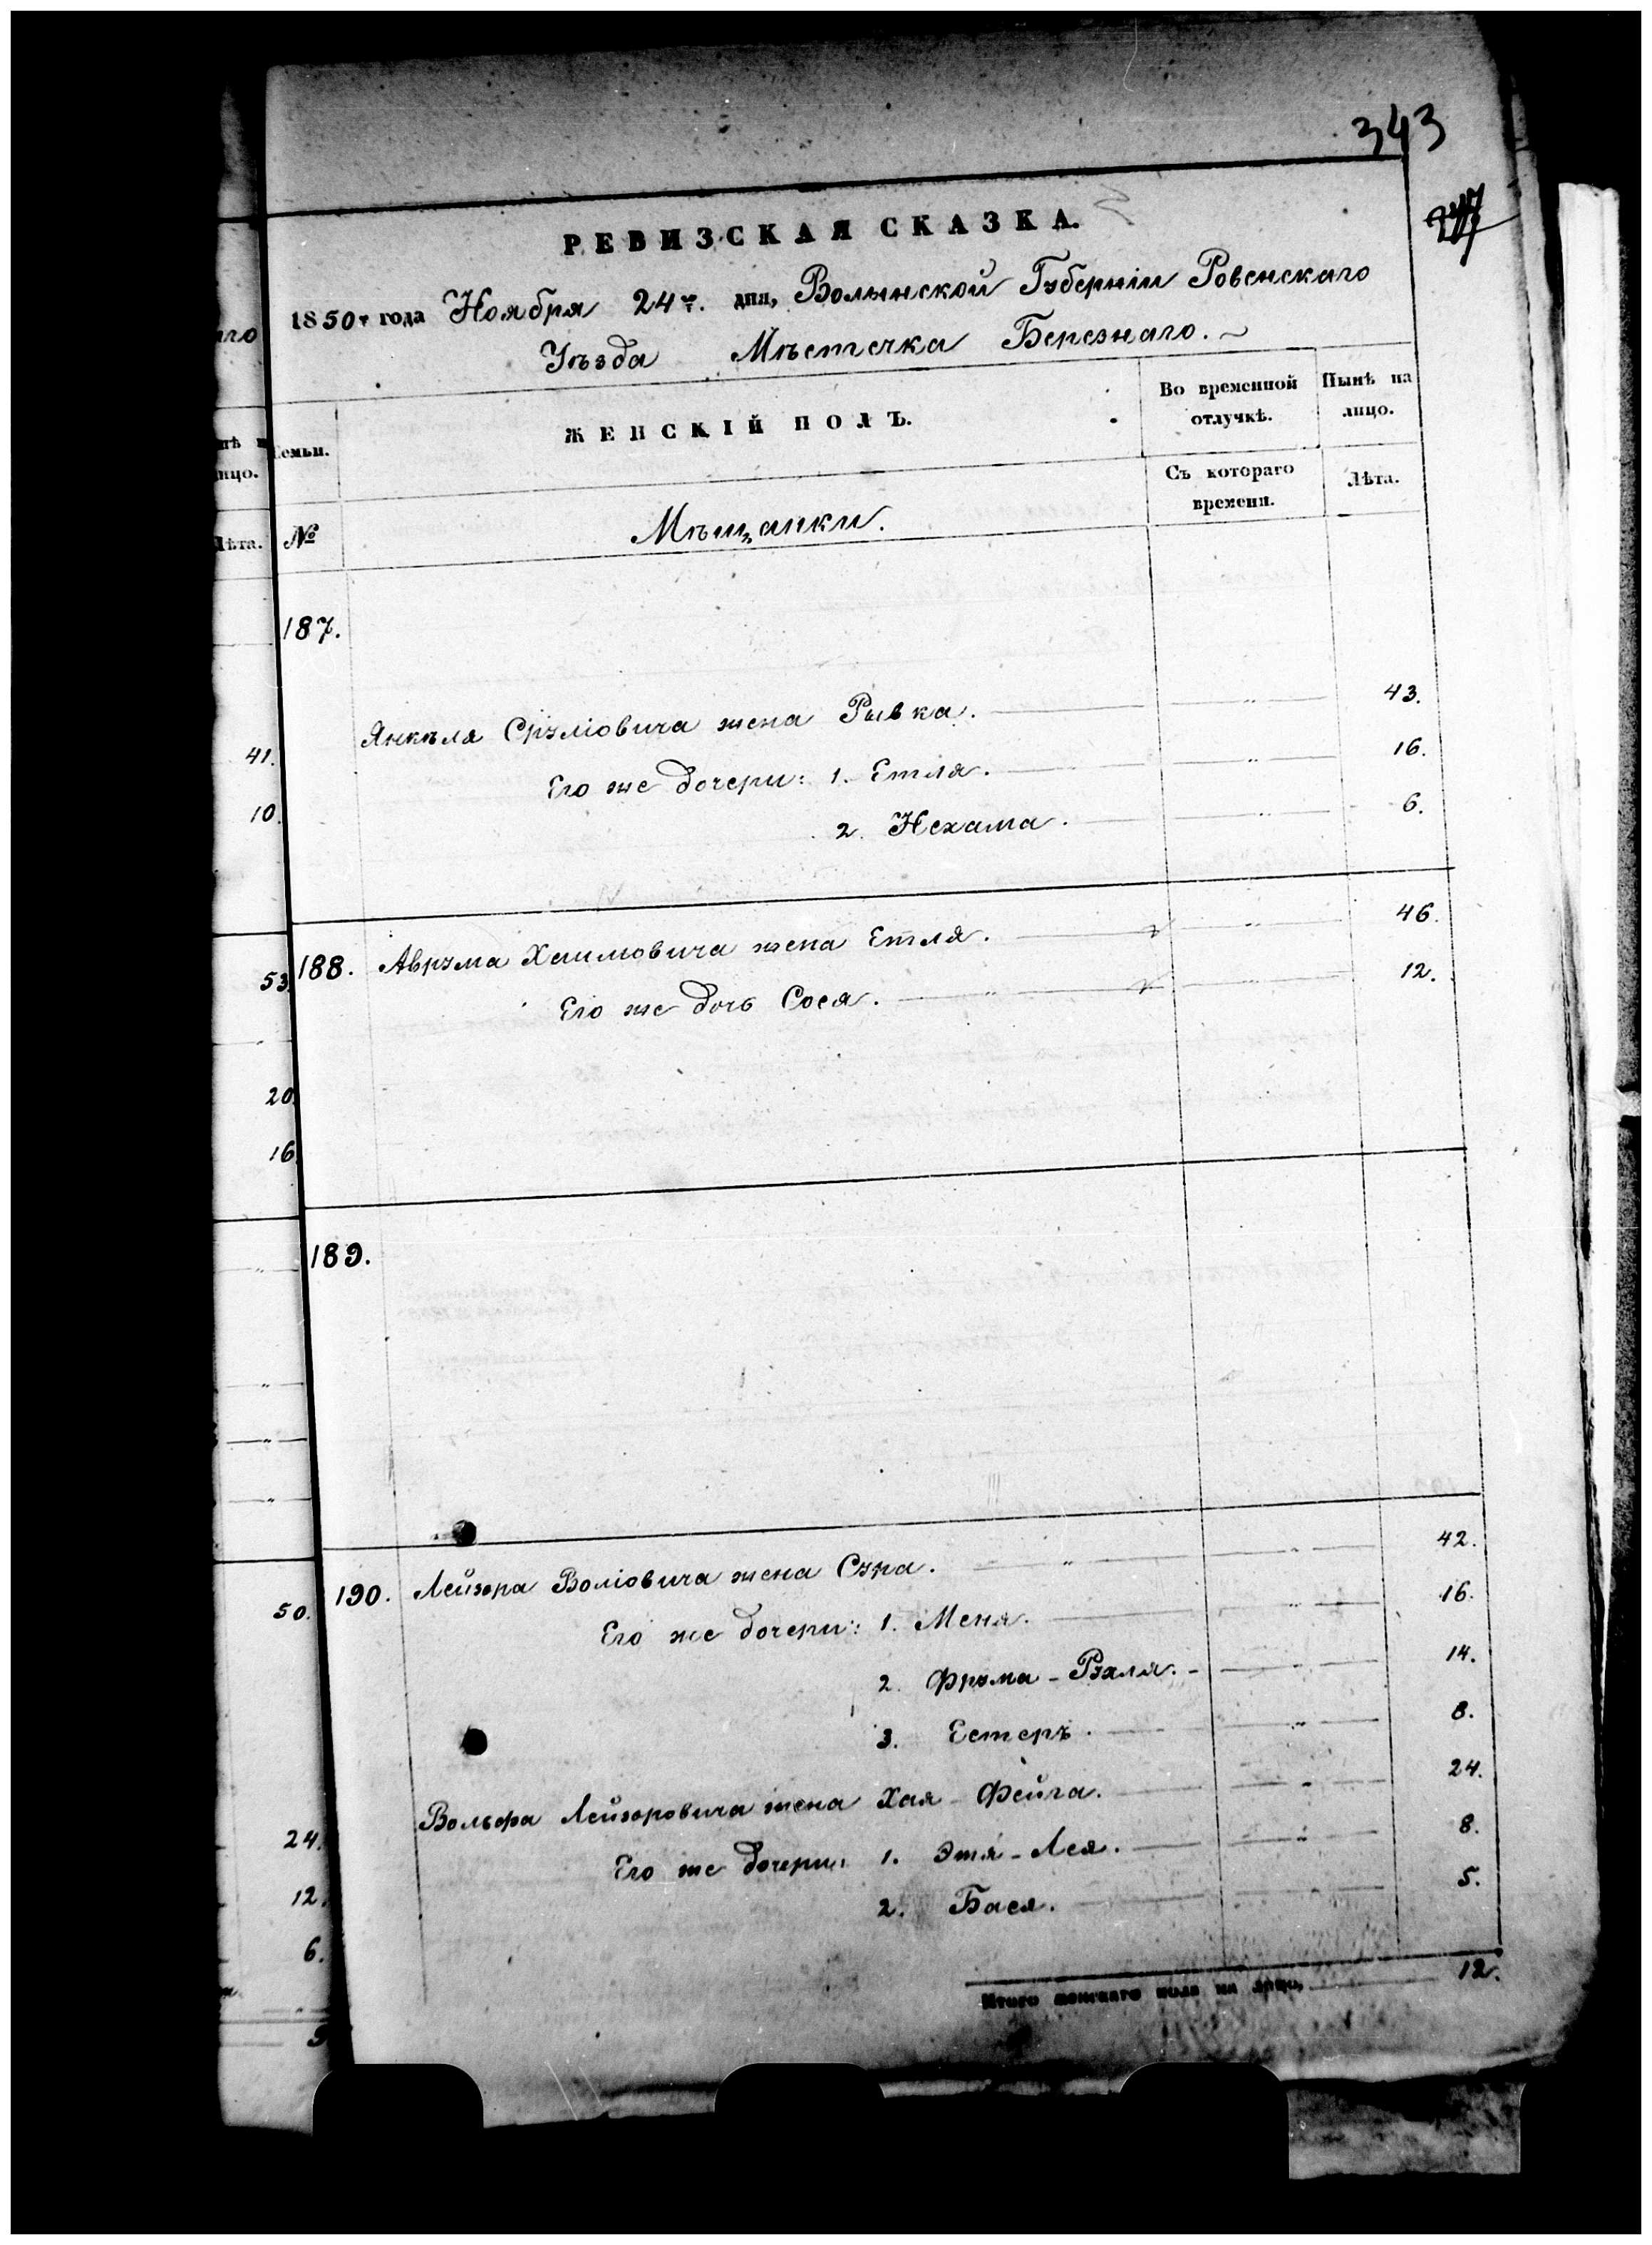 343
РЕВИЗСКАЯ СКАЗКА.
1850 года Ноября 24 дня, Волынской Губерніи Ровенскаго
Уѣзда Мѣстечка Березнаго.
Семьи.
ЖЕНСКІЙ ПОЛЪ.
Во временной отлучкѣ.
Нынѣ на лицо.
№
Мѣщанки.
Съ котораго времени.
Лѣта.
187.
Янкѣля Срулiовича жена Рывка. " 43.
Его же дочери: 1. Етля. " 16.
2. Нехама. " 6.
188. Аврума Хаимовича жена Етля. " 46.
Его же дочь Сося. " 12.
189.
190. Лейзора Волiовича жена Сура. " 42.
Его же дочери: 1. Меня. " 16.
2. Фрума-Рухля. " 14.
3. Естеръ. " 8.
Вольфа Лейзоровича жена Хая-Фейга. " 24.
Его же дочери: 1. Этя-Лея. " 8.
2. Бася. 5.
Итого женскаго пола на лицо, 12.
аго
лицо.
Лѣта.
41.
10.
53.
20.
16.
50.
24.
12.
6.